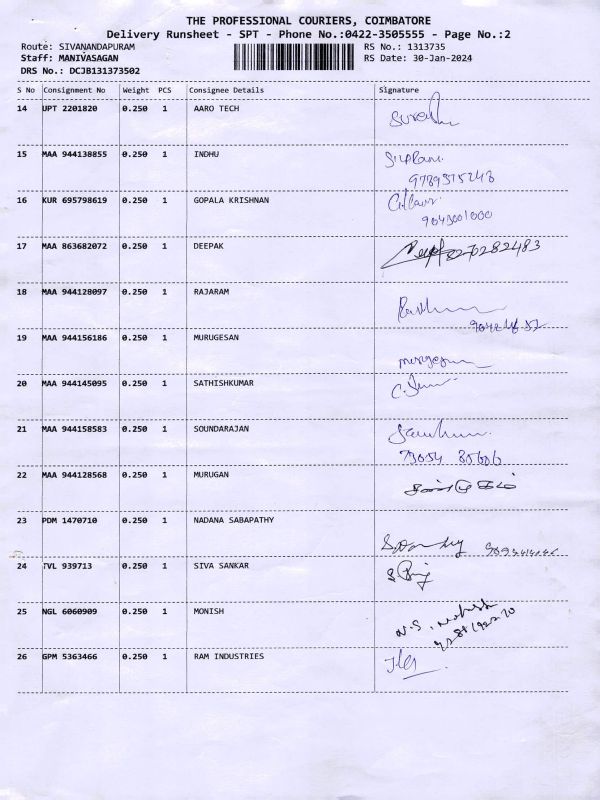 THE PROFESSIONAL COURIERS, COIMBATORE
Delivery Runsheet - SPT - Phone No.:0422-3505555 - Page No.:2
Route: SIVANANDAPURAM RS No.: 1313735
Staff: MANIVASAGAN RS Date: 30-Jan-2024
DRS No.: DCJB131373502
S No Consignment No Weight PCS Consignee Details Signature
14 UPT 2201820 0.250 1 AARO TECH
15 MAA 944138855 0.250 1 INDHU
16 KUR 695798619 0.250 1 GOPALA KRISHNAN
17 MAA 863682072 0.250 1 DEEPAK 8270282483
18 MAA 944128097 0.250 1 RAJARAM
19 MAA 944156186 0.250 1 MURUGESAN
murugesan
20 MAA 944145095 0.250 1 SATHISHKUMAR
21 MAA 944158583 0.250 1 SOUNDARAJAN
22 MAA 944128568 0.250 1 MURUGAN
23 PDM 1470710 0.250 1 NADANA SABAPATHY
24 TVL 939713 0.250 1 SIVA SANKAR
25 NGL 6060909 0.250 1 MONISH
26 GPM 5363466 0.250 1 RAM INDUSTRIES